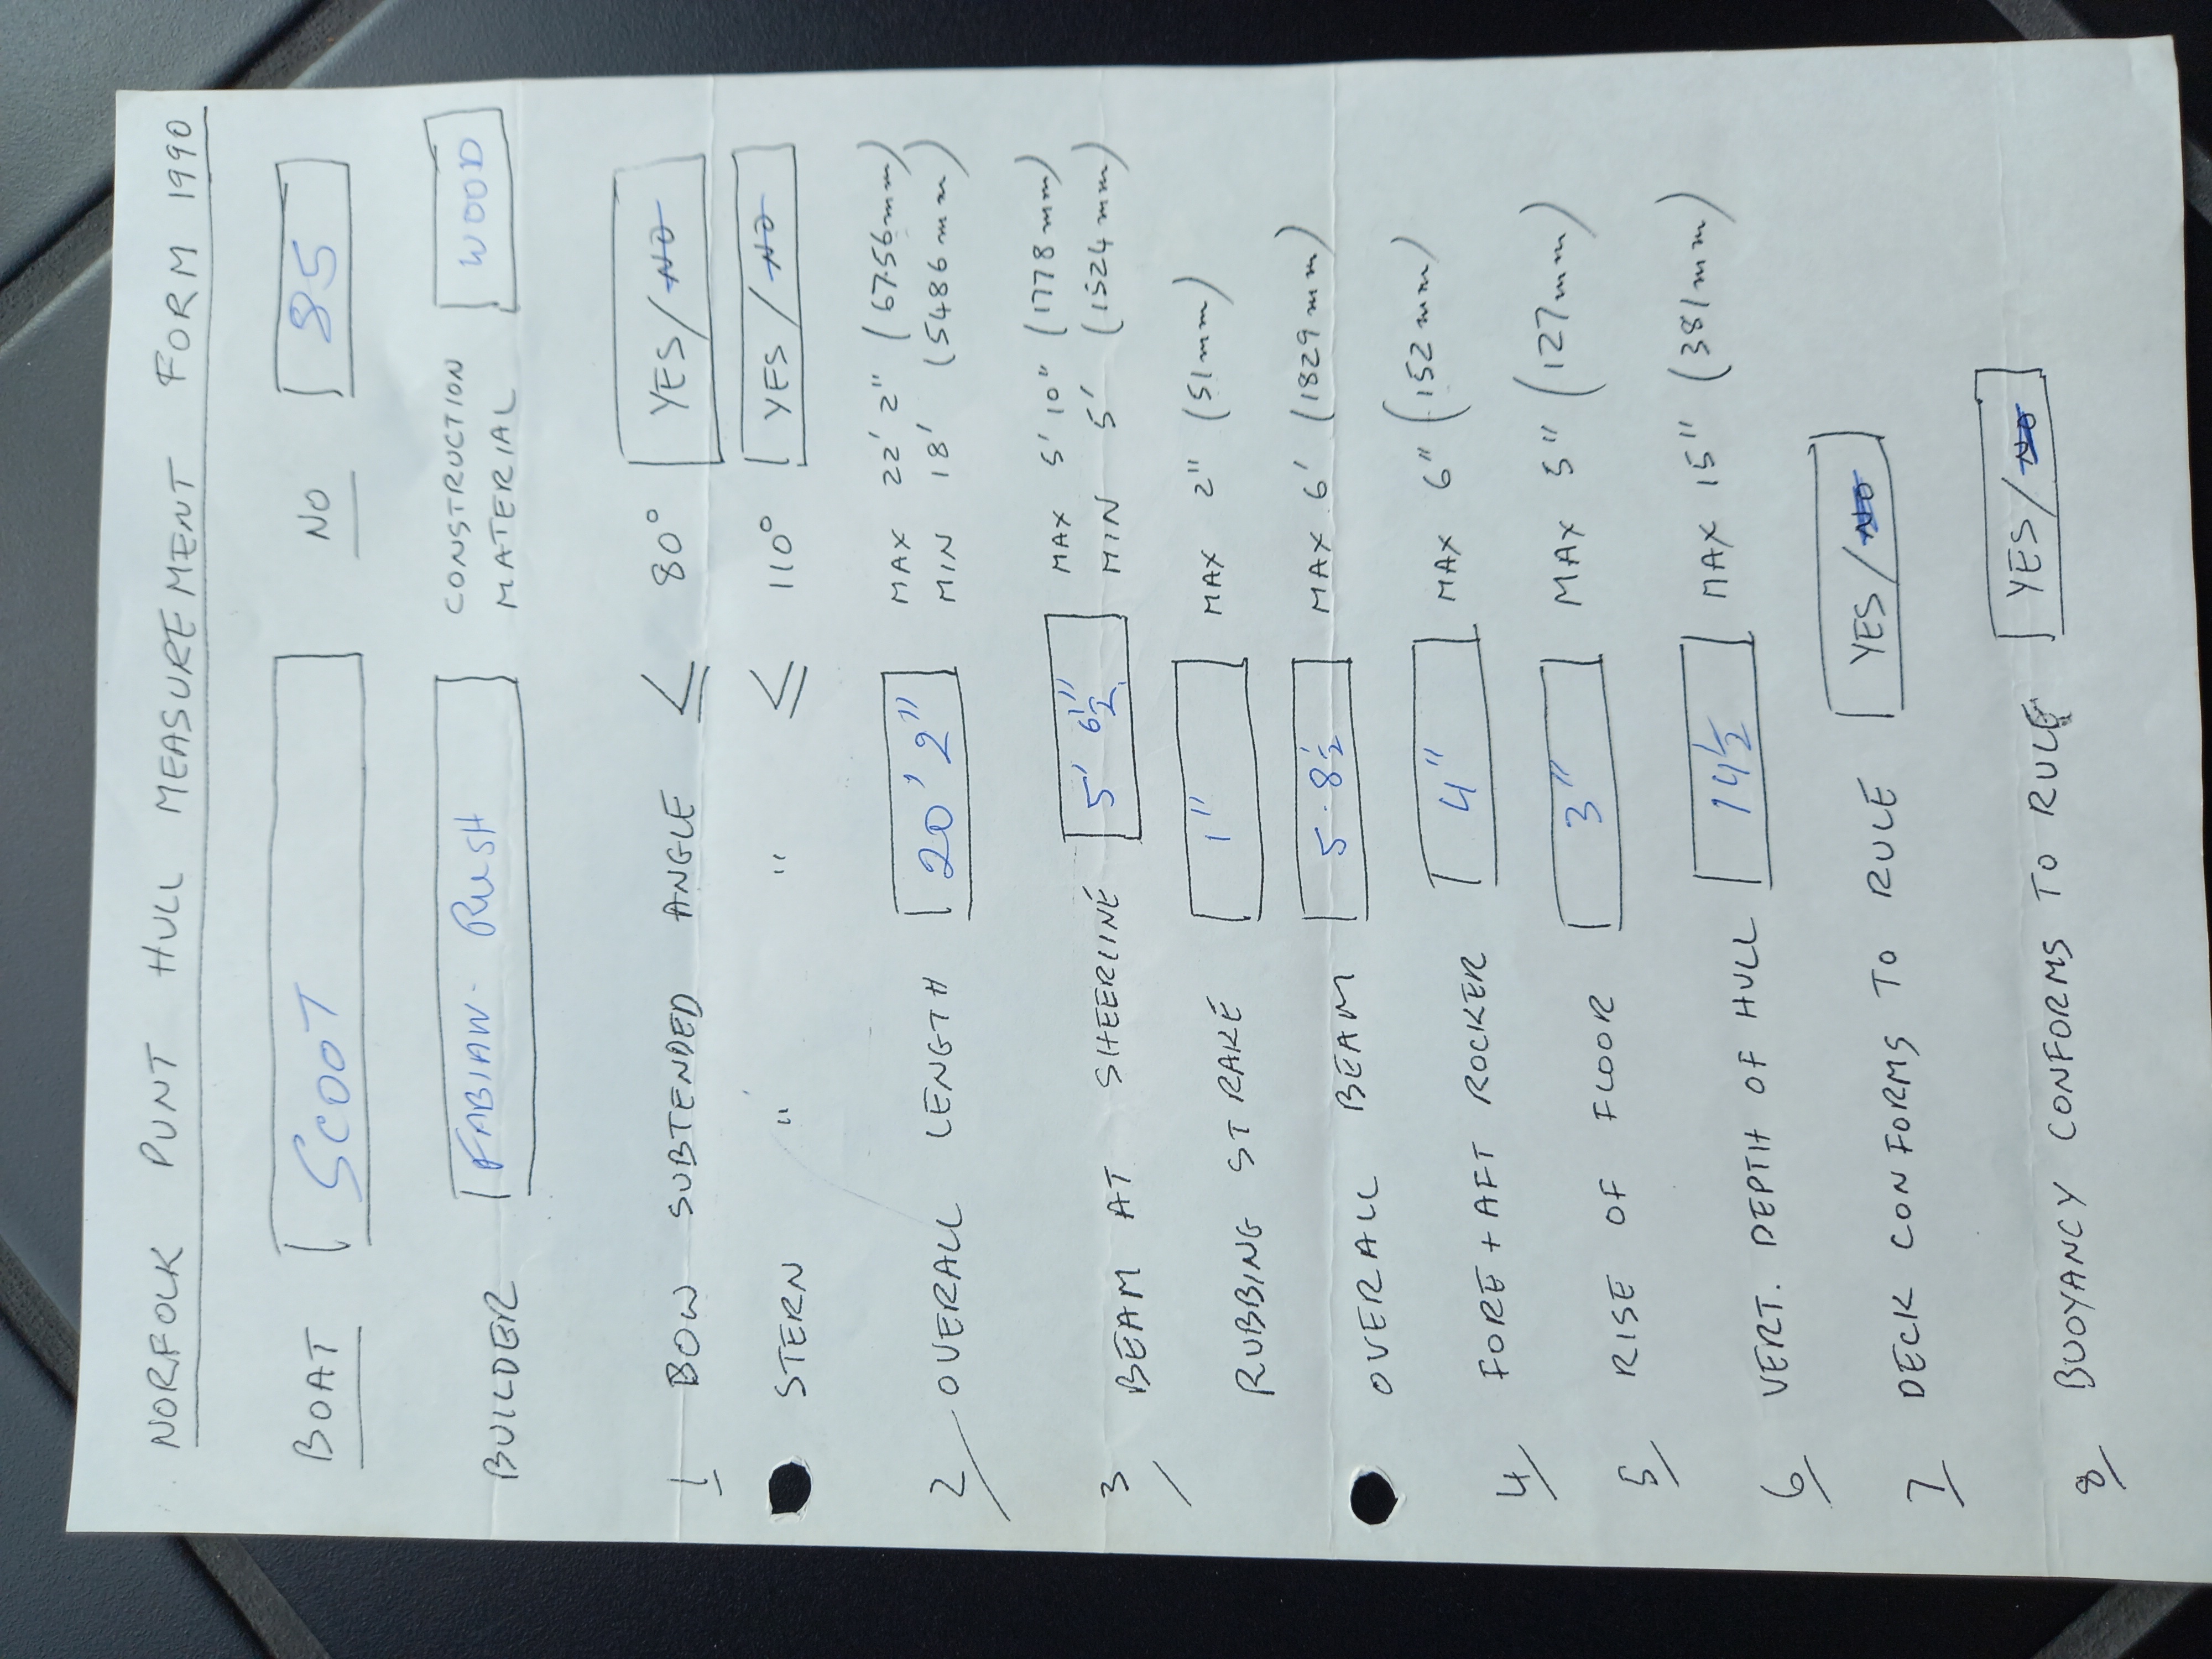 NORFOLK PUNT HULL MEASUREMENT FORM 1990
BOAT SCOOT NO 85
BUILDER FABIAN RUSH CONSTRUCTION MATERIAL WOOD
1 BOW SUBTENDED ANGLE ≤ 80° YES/NO
STERN " " ≤ 110° YES/NO
2/ OVERALL LENGTH 20' 2" MAX 22' 2" (6756mm)
MIN 18' (5486mm)
3/ BEAM AT SHEERLINE 5' 6½" MAX 5' 10" (1778mm)
MIN 5' (1524mm)
RUBBING STRAKE 1" MAX 2" (51mm)
OVERALL BEAM 5.8½ MAX 6' (1829mm)
4/ FORE + AFT ROCKER 4" MAX 6" (152mm)
5/ RISE OF FLOOR 3" MAX 5" (127mm)
6/ VERT. DEPTH OF HULL 14½ MAX 15" (381mm)
7/ DECK CONFORMS TO RULE YES/NO
8/ BUOYANCY CONFORMS TO RULE YES/NO